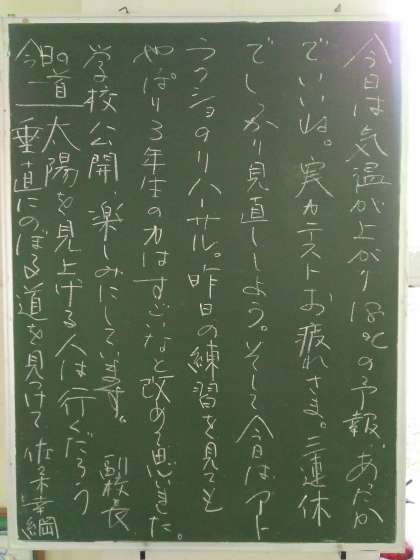 今日は気温が上がり18℃の予報、あったか
でいいね。実力テストお疲れさま。三連休
でしっかり見直ししよう。そして今日はアート
ラクショのリハーサル。昨日の練習を見ても
やっぱり3年生の力はすごいなと改めて思いました。
学校公開、楽しみにしています。 副校長
今日の道 太陽を見上げる人は行くだろう
垂直にのぼる道を見つけて 佐佐木幸綱